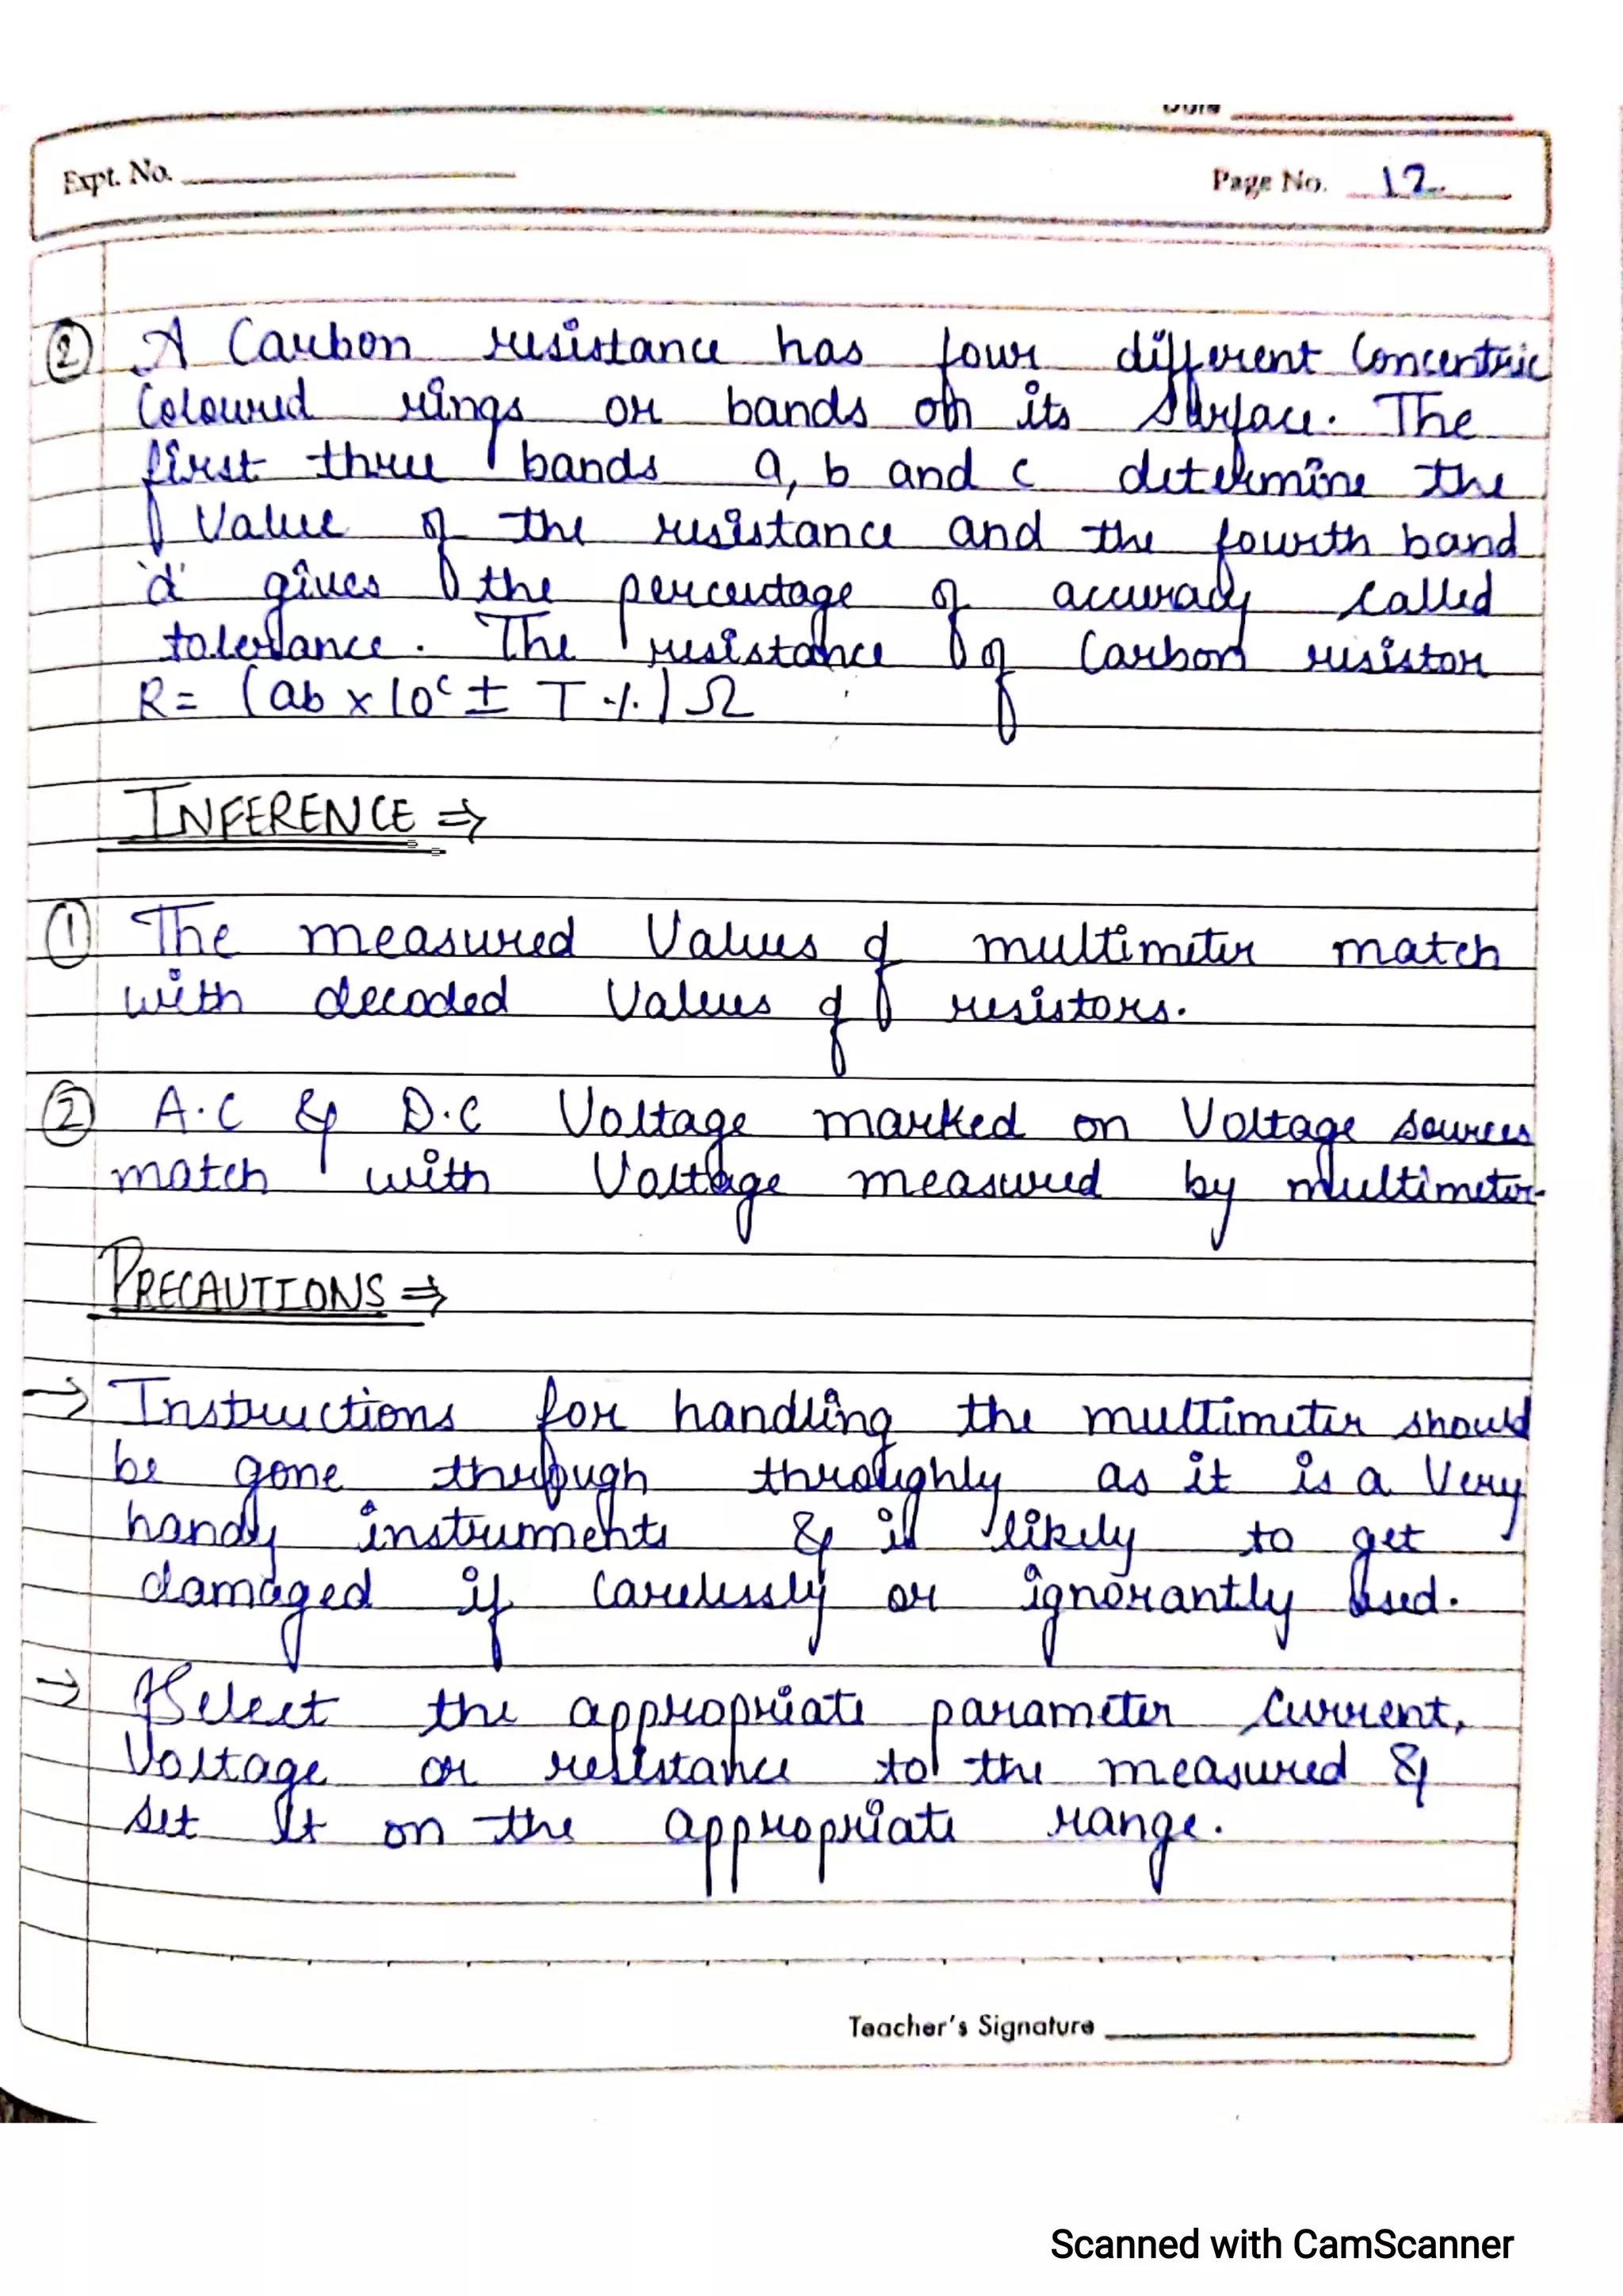 Expt. No.
Page No. 12
② A Carbon resistance has four different Concentric
Coloured rings or bands on its surface. The
first three bands a, b and c determine the
Value of the resistance and the fourth band
'd' gives the percentage of accuracy called
tolerance. The resistance of Carbon resistor
R = (ab x 10ᶜ ± T %) Ω
INFERENCE ⇒
① The measured Values of multimeter match
with decoded Values of resistors.
② A.C & D.C Voltage marked on Voltage sources
match with Voltage measured by multimeter.
PRECAUTIONS ⇒
→ Instructions for handling the multimeter should
be gone through throughly as it is a Very
handy instruments & is likely to get
damaged if carelessly or ignorantly used.
→ Select the appropriate parameter current,
Voltage or resistance to the measured &
set it on the appropriate range.
Teacher's Signature
Scanned with CamScanner